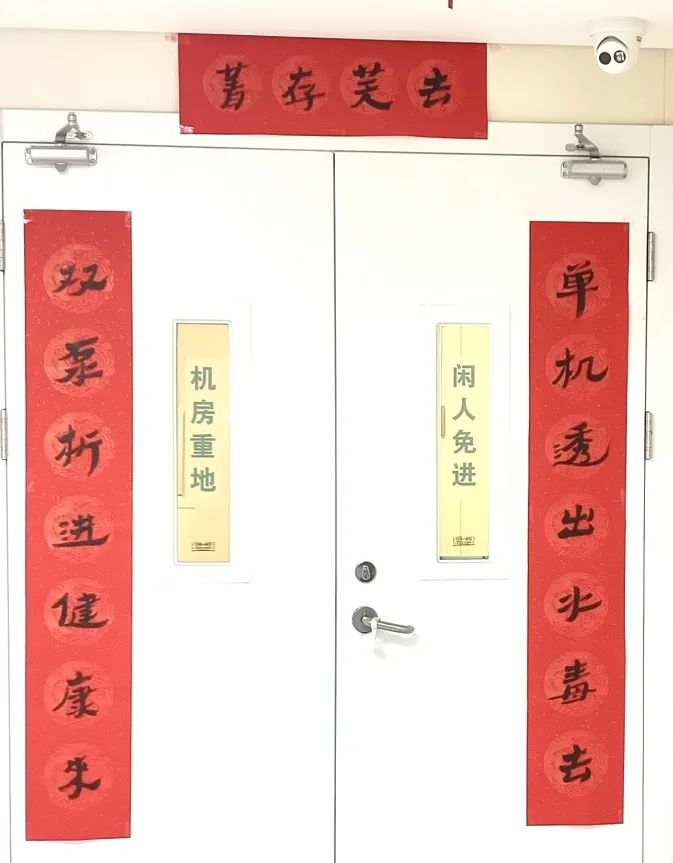 去芜存菁
单机透出水毒去
双泵析进健康来
机房重地
闲人免进